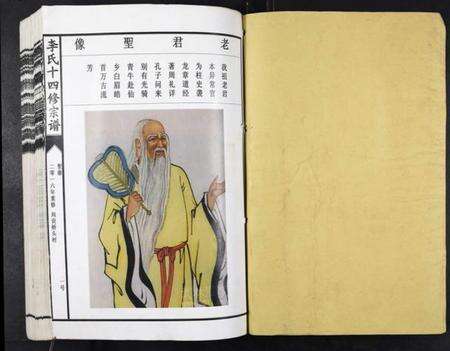 老君聖像
我祖老君
本异常官
为柱史袭
龙章道经
著周礼详
孔子问来
别有光骑
青牛赴仙
乡白眉皓
首万古流
芳
李氏十四修宗谱
二零一六年重修 桥头村
一号